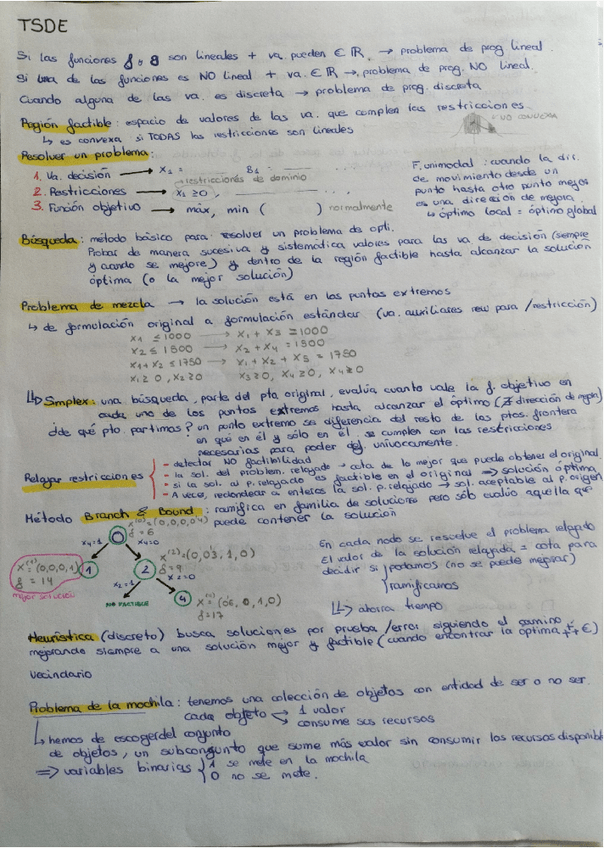 TSDE
Si las funciones f y g son lineales + va. pueden ∈ ℝ → problema de prog lineal.
Si una de las funciones es NO lineal + va. ∈ ℝ → problema de prog. NO lineal.
Cuando alguna de las va. es discreta → problema de prog. discreta
Región factible: espacio de valores de las va. que complen las restricciones
NO CONVEXA
↳ es convexa si TODAS las restricciones son lineales
Resolver un problema:
1. Va. decisión → x₁ =
restricciones de dominio
2. Restricciones → x₁ ≥ 0,
3. Función objetivo → máx, min ( ) normalmente
F. unimodal: cuando la dir.
de movimiento desde un
punto hasta otro punto mejor
es una dirección de mejora.
↳ óptimo local = óptimo global
Búsqueda: método básico para resolver un problema de opti.
Probar de manera sucesiva y sistemática valores para las va de decisión (siempre
y cuando se mejore) y dentro de la región factible hasta alcanzar la solución
óptima (o la mejor solución)
Problema de mezcla → la solución está en los puntos extremos
↳ de formulación original a formulación estándar (va. auxiliares new para /restricción)
x₁ ≤ 1000 → x₁ + x₃ = 1000
x₂ ≤ 1500 → x₂ + x₄ = 1500
x₁ + x₂ ≤ 1750 → x₁ + x₂ + x₅ = 1750
x₁ ≥ 0, x₂ ≥ 0 x₃ ≥ 0, x₄ ≥ 0, x₅ ≥ 0
↳ Simplex: una búsqueda, parte del pto original, evalúa cuanto vale la f. objetivo en
cada uno de los puntos extremos hasta alcanzar el óptimo (∄ dirección de mejora)
¿de qué pto. partimos? un punto extremo se diferencia del resto de los ptos. frontera
en que en él y sólo en él se cumplen con las restricciones
necesarias para poder def. unívocamente.
Relajar restricciones
- detectar NO factibilidad
- la sol. del problem. relajado → cota de lo mejor que puede obtener el original
- si la sol. al p. relajado es factible en el original ⇒ solución óptima
- A veces, redondear a enteros la sol. p. relajado → sol. aceptable al p. origen
Método Branch & Bound: ramifica en familia de soluciones pero sólo evalúa aquella que
puede contener la solución
x⁽⁰⁾ = (0,0,0,04)
f = 6
0
x₄=1 x₄=0
x⁽¹⁾ = (0,0,0,1)
f = 14
mejor solución
1
x⁽²⁾ = (0,03,1,0)
f = 9
2
x₂=1 x₂=0
NO FACTIBLE
4
f = 17
En cada nodo se resuelve el problema relajado
El valor de la solución relajada = cota para
decidir si podamos (no se puede mejorar)
ramificamos
↳ ahorra tiempo
Heurística (discreto) busca soluciones por prueba /error siguiendo el camino
mejorando siempre a una solución mejor y factible (cuando encontrar la óptima ++ €)
vecindario
Problema de la mochila: tenemos una colección de objetos con entidad de ser o no ser.
cada objeto 1 valor
consume sus recursos
↳ hemos de escoger del conjunto
de objetos, un subconjunto que sume más valor sin consumir los recursos disponible
⇒ variables binarias { 1 se mete en la mochila
0 no se mete.